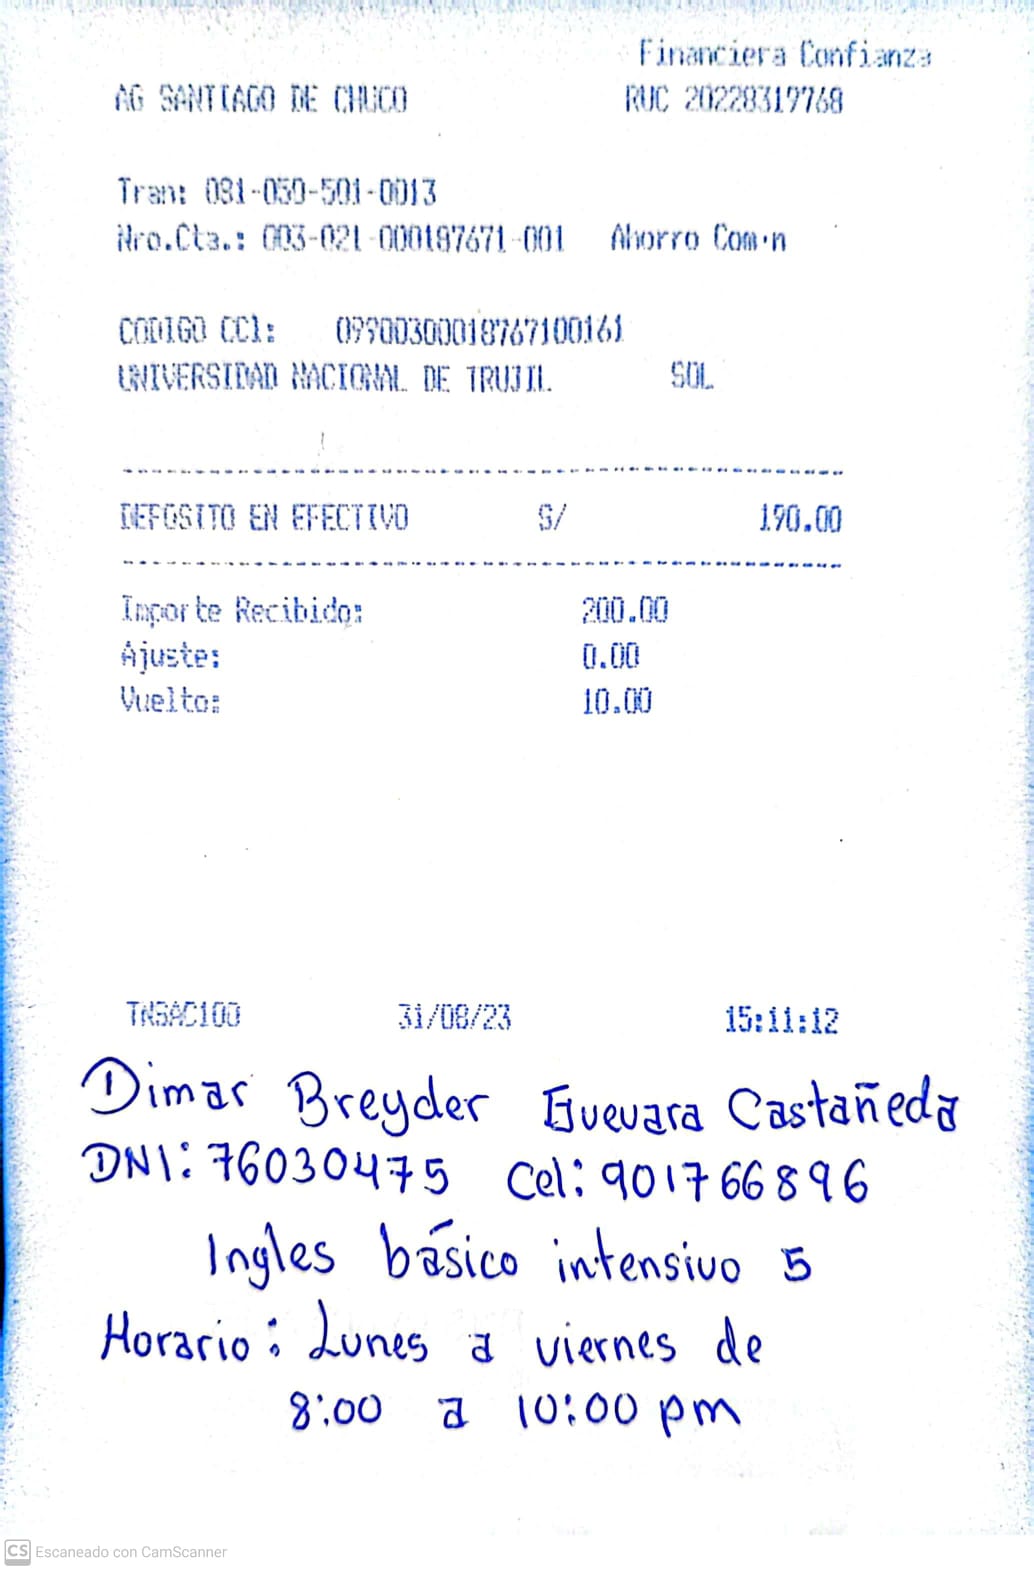 Financiera Confianza
AG SANTIAGO DE CHUCO RUC 20228319768
Tran: 081-050-501-0013
Nro.Cta.: 003-021-000187671-001 Ahorro Com·n
CODIGO CCI: 09900300018767100161
UNIVERSIDAD NACIONAL DE TRUJIL SOL
DEPOSITO EN EFECTIVO S/ 190.00
Importe Recibido: 200.00
Ajuste: 0.00
Vuelto: 10.00
TNSAC100 31/08/23 15:11:12
Dimar Breyder Guevara Castañeda
DNI: 76030475 Cel: 901766896
Ingles básico intensivo 5
Horario: Lunes a viernes de
8:00 a 10:00 pm
CS Escaneado con CamScanner